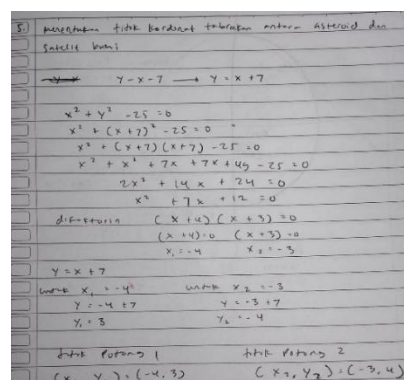 5.) menentukan titik kordinat tabrakan antara asteroid dan
satelit bumi
y - x - 7 → y = x + 7
x² + y² - 25 = 0
x² + (x + 7)² - 25 = 0
x² + (x + 7) (x + 7) - 25 = 0
x² + x² + 7x + 7x + 49 - 25 = 0
2x² + 14x + 24 = 0
x² + 7x + 12 = 0
difaktorin (x + 4) (x + 3) = 0
(x + 4) = 0 (x + 3) = 0
x₁ = -4 x₂ = -3
y = x + 7
untuk x₁ = -4 untuk x₂ = -3
y = -4 + 7 y = -3 + 7
y₁ = 3 y₂ = -4
titik Potong 1 titik Potong 2
(x y) = (-4, 3) (x₂, y₂) = (-3, 4)